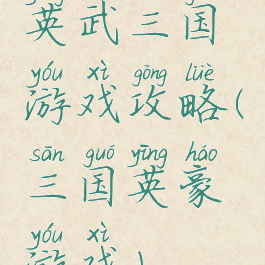 英武三国
yóu xì gōng lüè
游戏攻略(
sān guó yīng háo
三国英豪
yóu xì
游戏)